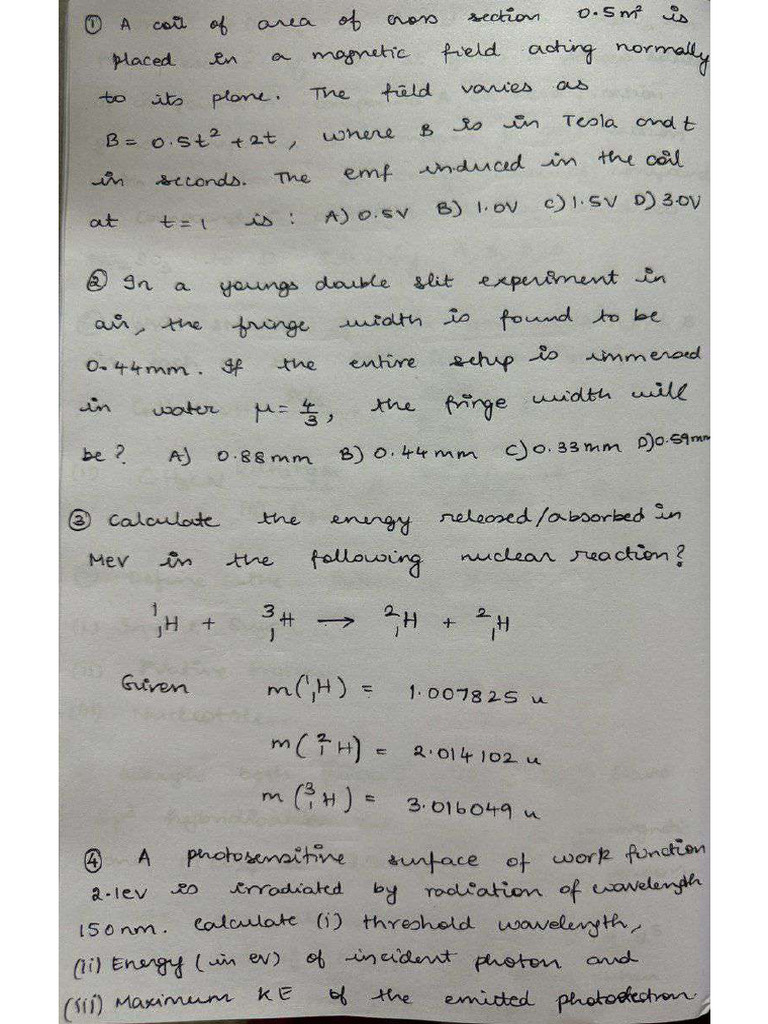 ① A coil of area of cross section 0.5m² is
placed in a magnetic field acting normally
to its plane. The field varies as
B = 0.5t² + 2t, where B is in Tesla and t
in seconds. The emf induced in the coil
at t = 1 is : A) 0.5V B) 1.0V C) 1.5V D) 3.0V
② In a youngs double slit experiment in
air, the fringe width is found to be
0.44mm. If the entire setup is immersed
in water μ = 4/3, the fringe width will
be? A) 0.88mm B) 0.44mm C) 0.33mm D) 0.59mm
③ Calculate the energy released/absorbed in
MeV in the following nuclear reaction?
¹₁H + ³₁H → ²₁H + ²₁H
Given m(¹₁H) = 1.007825 u
m(²₁H) = 2.014102 u
m(³₁H) = 3.016049 u
④ A photosensitive surface of work function
2.1eV is irradiated by radiation of wavelength
150nm. Calculate (i) threshold wavelength,
(ii) Energy (in eV) of incident photon and
(iii) Maximum KE of the emitted photoelectron.